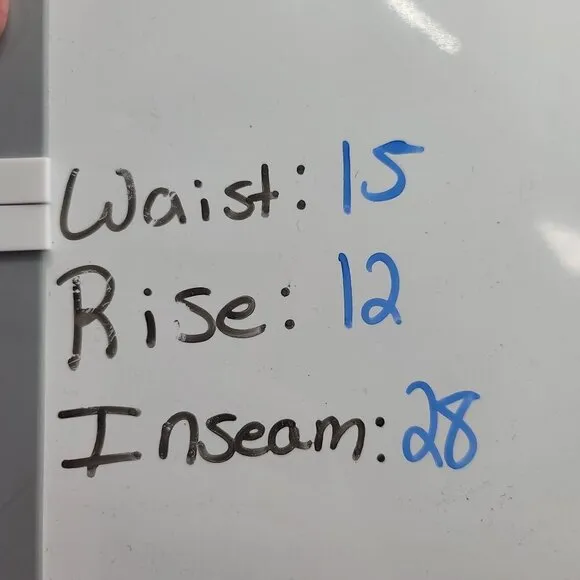 Waist: 15
Rise: 12
Inseam: 28